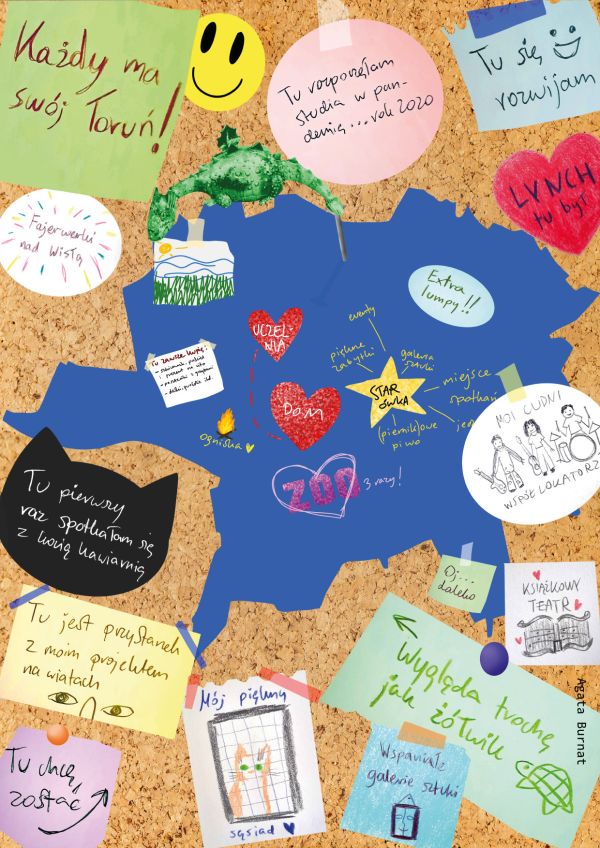 Każdy ma
swój Toruń!
Tu rozpoczęłam
studia w pan-
demię...rok 2020
Tu się
rozwijam
LYNCH
tu był
Fajerwerki
nad Wisłą
Extra
lumpy!!
UCZEL-
NIA
Dom
eventy
piękne
zabytki
galeria
sztuki
STAR
ÓWKA
miejsce
spotkań
(piernik)owe
piwo
Tu zawsze kupię:
ogniska
ZOO 3 razy!
MOI CUDNI
WSPÓŁLOKATORZ
Tu pierwszy
raz spotkałam się
z kocią kawiarnią
Oj...
daleko
KSIĄŻKOWY
TEATR
Tu jest przystanek
z moim projektem
na wiatach
Wygląda trochę
jak żółwik
Mój piękny
sąsiad
Wspaniałe
galerie sztuki
Tu chcę
zostać
Agata Burnat